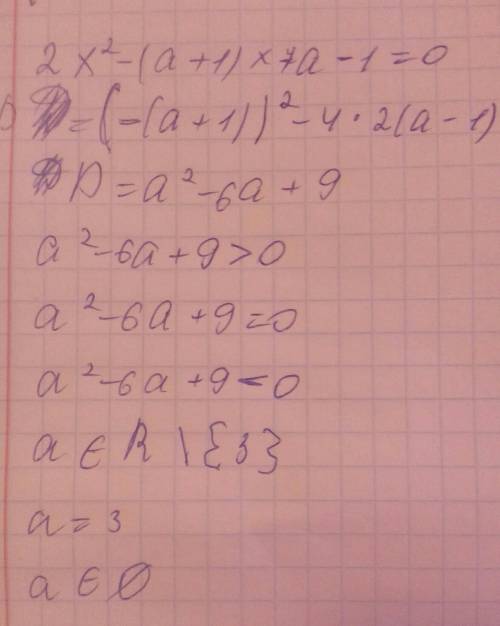 2x²-(a+1)x+a-1=0
D=(-(a+1))²-4·2(a-1)
D=a²-6a+9
a²-6a+9>0
a²-6a+9=0
a²-6a+9<0
a∈R\{3}
a=3
a∈∅